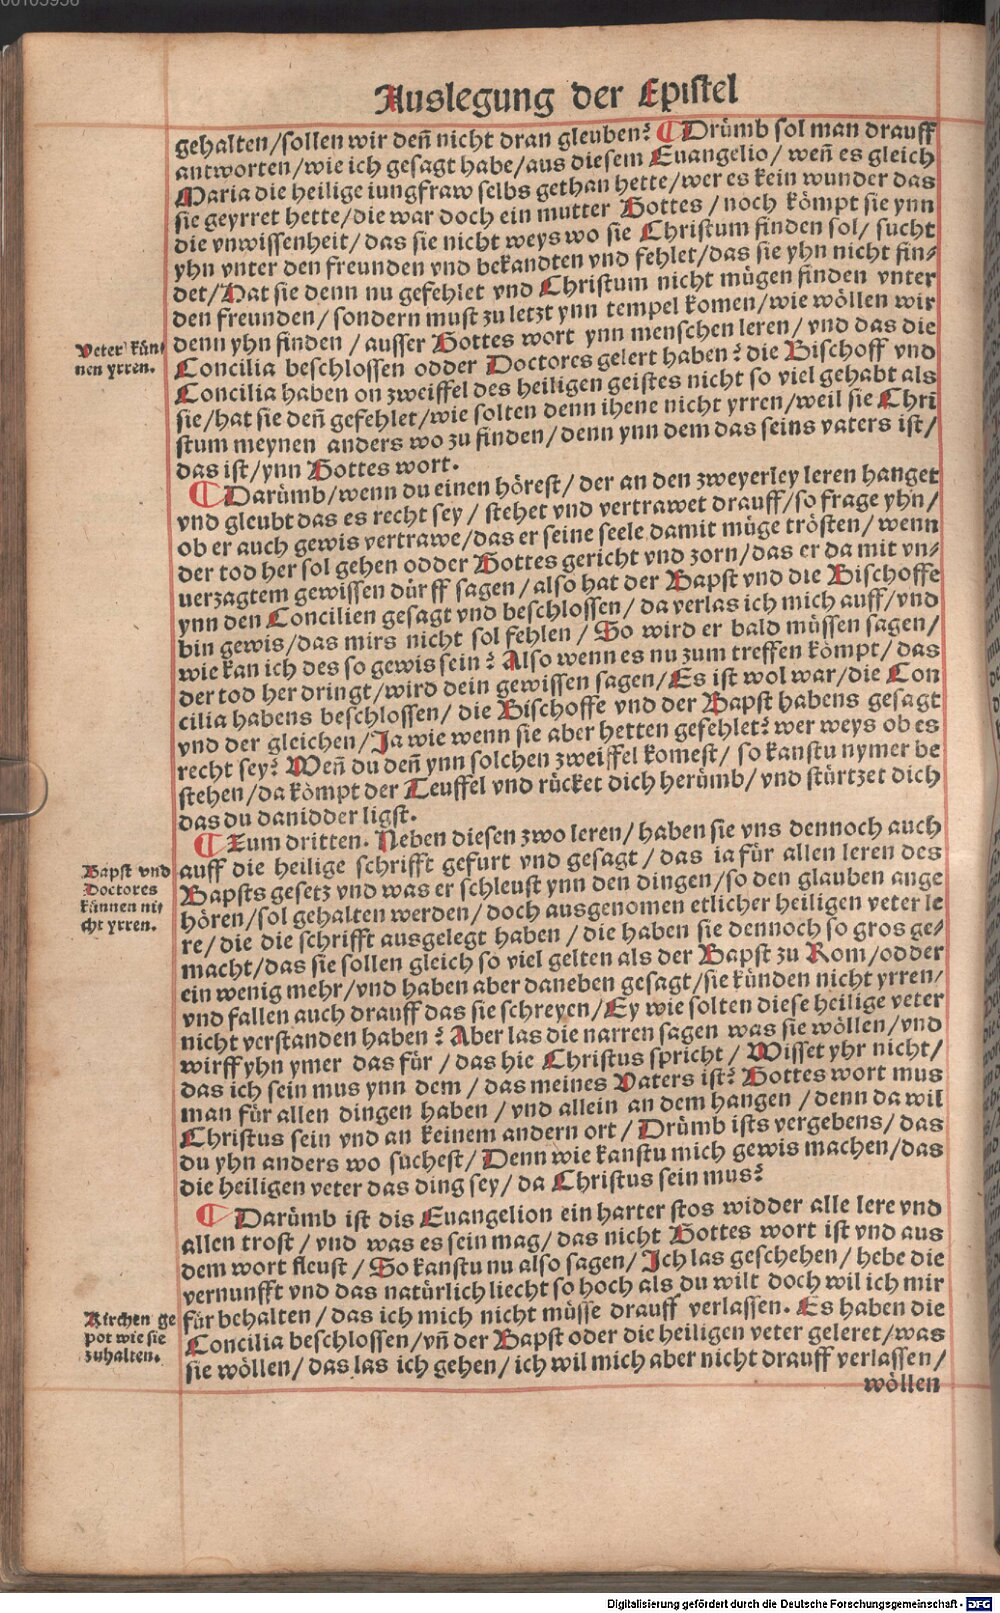 00105956
Auslegung der Epistel
gehalten/sollen wir deñ nicht dran gleuben? ¶ Drümb sol man drauff
antworten/wie ich gesagt habe/aus diesem Euangelio/ weñ es gleich
Maria die heilige iungfraw selbs gethan hette/wer es kein wunder das
sie geyrret hette/die war doch ein mutter Gottes/noch kömpt sie ynn
die vnwissenheit/das sie nicht weys wo sie Christum finden sol/ sucht
yhn vnter den freunden vnd bekandten vnd fehlet/das sie yhn nicht fin-
det/Hat sie denn nu gefehlet vnd Christum nicht mügen finden vnter
den freunden/sondern must zu letzt ynn tempel komen/wie wöllen wir
Veter kün-
nen yrren.
denn yhn finden/ausser Gottes wort ynn menschen leren/vnd das die
Concilia beschlossen odder Doctores gelert haben? die Bischoff vnd
Concilia haben on zweiffel des heiligen geistes nicht so viel gehabt als
sie/hat sie deñ gefehlet/wie solten denn ihene nicht yrren/weil sie Chri
stum meynen anders wo zu finden/denn ynn dem das seins vaters ist/
das ist/ynn Gottes wort.
¶ Darümb/wenn du einen hörest/der an den zweyerley leren hanget
vnd gleubt das es recht sey/ stehet vnd vertrawet drauff/so frage yhn/
ob er auch gewis vertrawe/das er seine seele damit müge trösten/wenn
der tod her sol gehen odder Gottes gericht vnd zorn/das er da mit vn-
uerzagtem gewissen dürff sagen/also hat der Bapst vnd die Bischoffe
ynn den Concilien gesagt vnd beschlossen/da verlas ich mich auff/vnd
bin gewis/das mirs nicht sol fehlen/So wird er bald müssen sagen/
wie kan ich des so gewis sein? Also wenn es nu zum treffen kömpt/das
der tod her dringt/wird dein gewissen sagen/Es ist wol war/die Con
cilia habens beschlossen/die Bischoffe vnd der Bapst habens gesagt
vnd der gleichen/Ja wie wenn sie aber hetten gefehlet? wer weys ob es
recht sey? Weñ du deñ ynn solchen zweiffel komest/so kanstu nymer be
stehen/da kömpt der Teuffel vnd rücket dich herümb/vnd stürtzet dich
das du danidder ligst.
¶ Zum dritten. Neben diesen zwo leren/haben sie vns dennoch auch
Bapst vnd
Doctores
künnen ni-
cht yrren.
auff die heilige schrifft gefurt vnd gesagt/das ia für allen leren des
Bapsts gesetz vnd was er schleust ynn den dingen/so den glauben ange
hören/sol gehalten werden/doch ausgenomen etlicher heiligen veter le
re/die die schrifft ausgelegt haben/die haben sie dennoch so gros ge-
macht/das sie sollen gleich so viel gelten als der Bapst zu Rom/odder
ein wenig mehr/vnd haben aber daneben gesagt/sie künden nicht yrren/
vnd fallen auch drauff das sie schreyen/Ey wie solten diese heilige veter
nicht verstanden haben? Aber las die narren sagen was sie wöllen/vnd
wirff yhn ymer das für/das hie Christus spricht/Wisset yhr nicht/
das ich sein mus ynn dem/das meines Vaters ist? Gottes wort mus
man für allen dingen haben/vnd allein an dem hangen/denn da wil
Christus sein vnd an keinem andern ort/Drümb ists vergebens/das
du yhn anders wo suchest/Denn wie kanstu mich gewis machen/das
die heiligen veter das ding sey/da Christus sein mus?
¶ Darümb ist dis Euangelion ein harter stos widder alle lere vnd
allen trost/vnd was es sein mag/das nicht Gottes wort ist vnd aus
dem wort fleust/So kanstu nu also sagen/Ich las geschehen/hebe die
vernunfft vnd das natürlich liecht so hoch als du wilt doch wil ich mir
Kirchen ge
pot wie sie
zuhalten.
für behalten/das ich mich nicht müsse drauff verlassen. Es haben die
Concilia beschlossen/vñ der Bapst oder die heiligen veter geleret/was
sie wöllen/das las ich gehen/ich wil mich aber nicht drauff verlassen/
wöllen
Digitalisierung gefördert durch die Deutsche Forschungsgemeinschaft - DFG